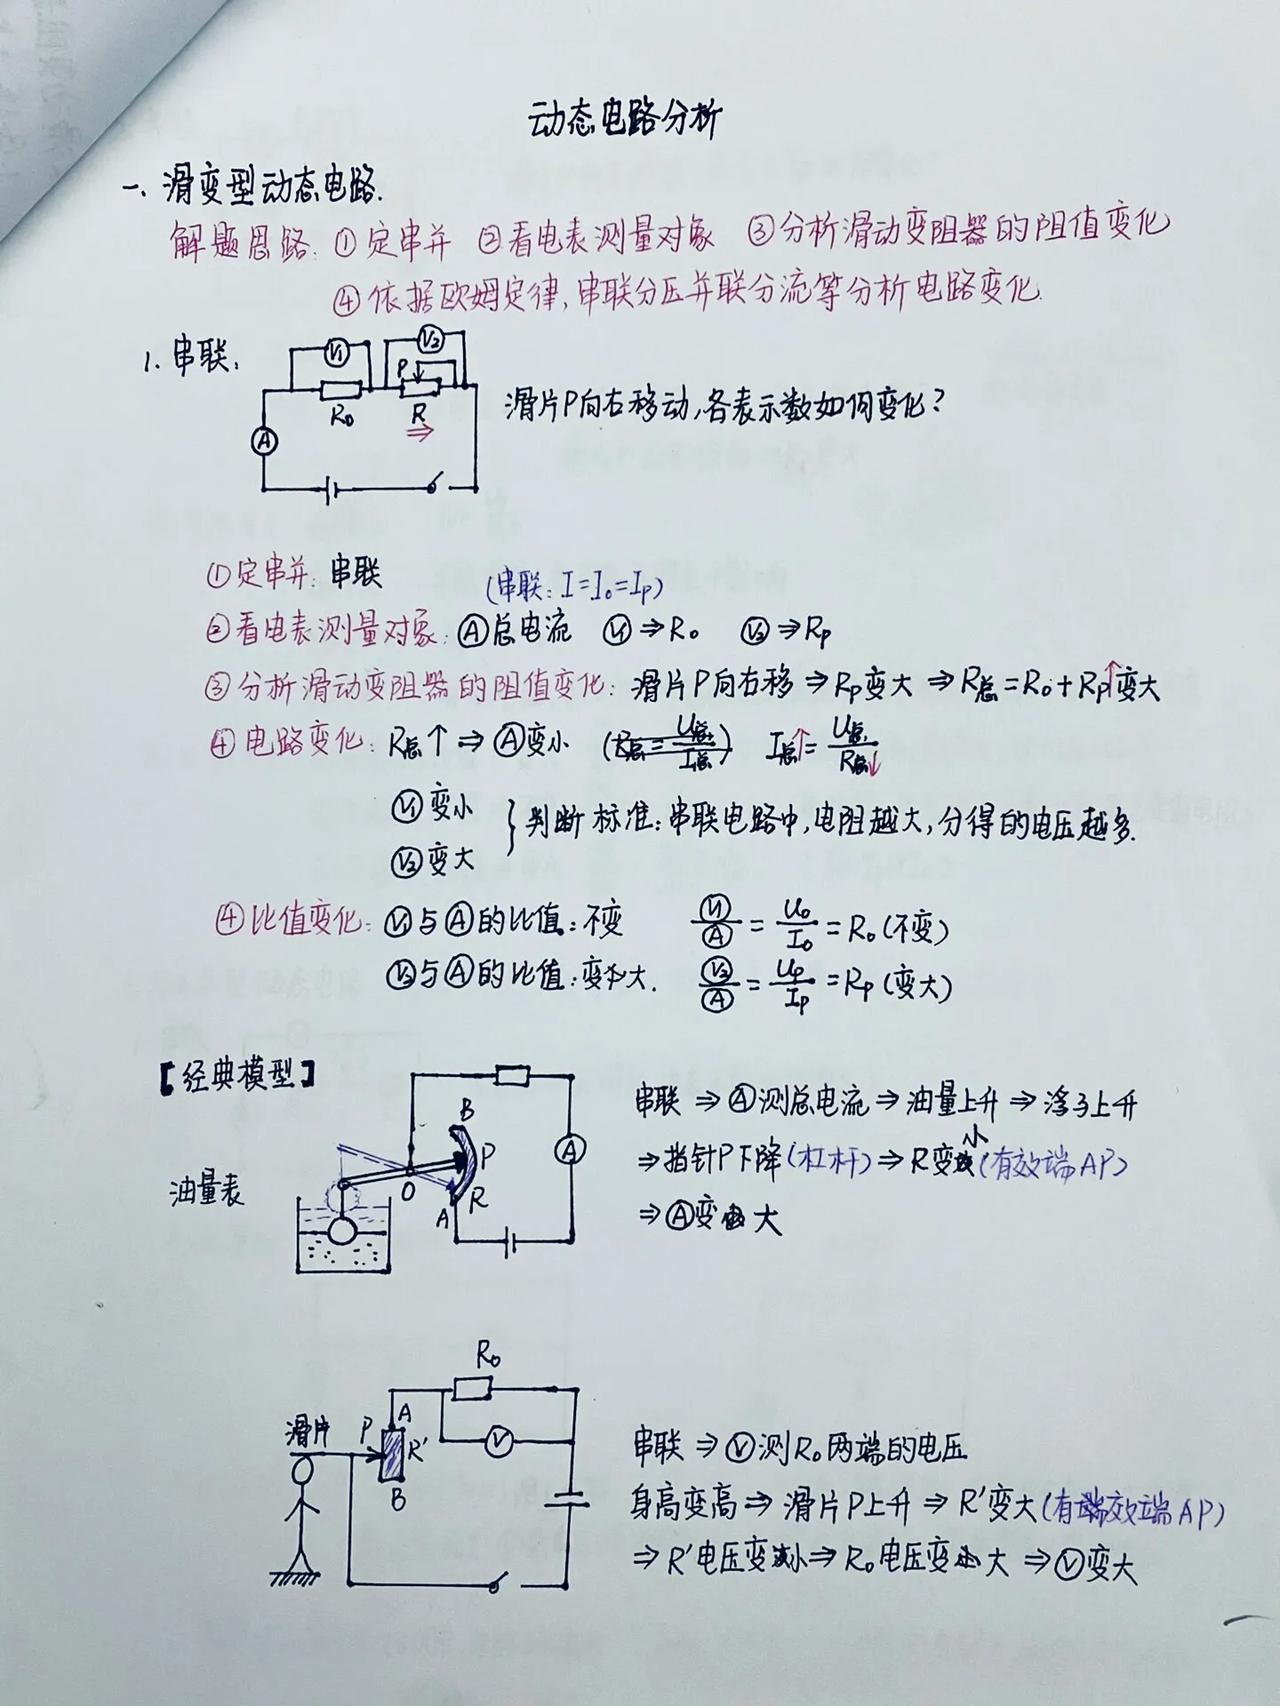 动态电路分析
一、滑变型动态电路.
解题思路:①定串并 ②看电表测量对象 ③分析滑动变阻器的阻值变化
④依据欧姆定律,串联分压并联分流等分析电路变化.
1. 串联:
V1 V2
P
R0 R
A
滑片P向右移动,各表示数如何变化?
①定串并:串联 (串联:I=I0=IP)
②看电表测量对象:Ⓐ总电流 V1⇒R0 V2⇒RP
③分析滑动变阻器的阻值变化:滑片P向右移⇒RP变大⇒R总=R0+RP↑变大
④电路变化:R总↑⇒Ⓐ变小 (R总=U总/I总) I总↑=U总/R总↓
V1变小
V2变大
}判断标准:串联电路中,电阻越大,分得的电压越多.
④比值变化:V1与Ⓐ的比值:不变 V1/A=U0/I0=R0(不变)
V2与Ⓐ的比值:变大. V2/A=UP/IP=RP(变大)
【经典模型】
油量表
B
P
O
A R
A
串联⇒Ⓐ测总电流⇒油量上升⇒浮子上升
⇒指针P下降(杠杆)⇒R变小(有效端AP)
⇒Ⓐ变大
R0
滑片 P A
R'
B
V
串联⇒Ⓥ测R0两端的电压
身高变高⇒滑片P上升⇒R'变大(有效端AP)
⇒R'电压变小⇒R0电压变大⇒Ⓥ变大